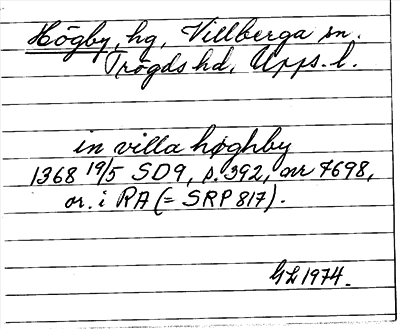 Högby, hg, Villberga sn.
Trögds hd, Upps. l.
in villa høghby
1368 19/5 SD9, s. 392, nr 7698,
or. i RA (= SRP 817).
GL 1974.